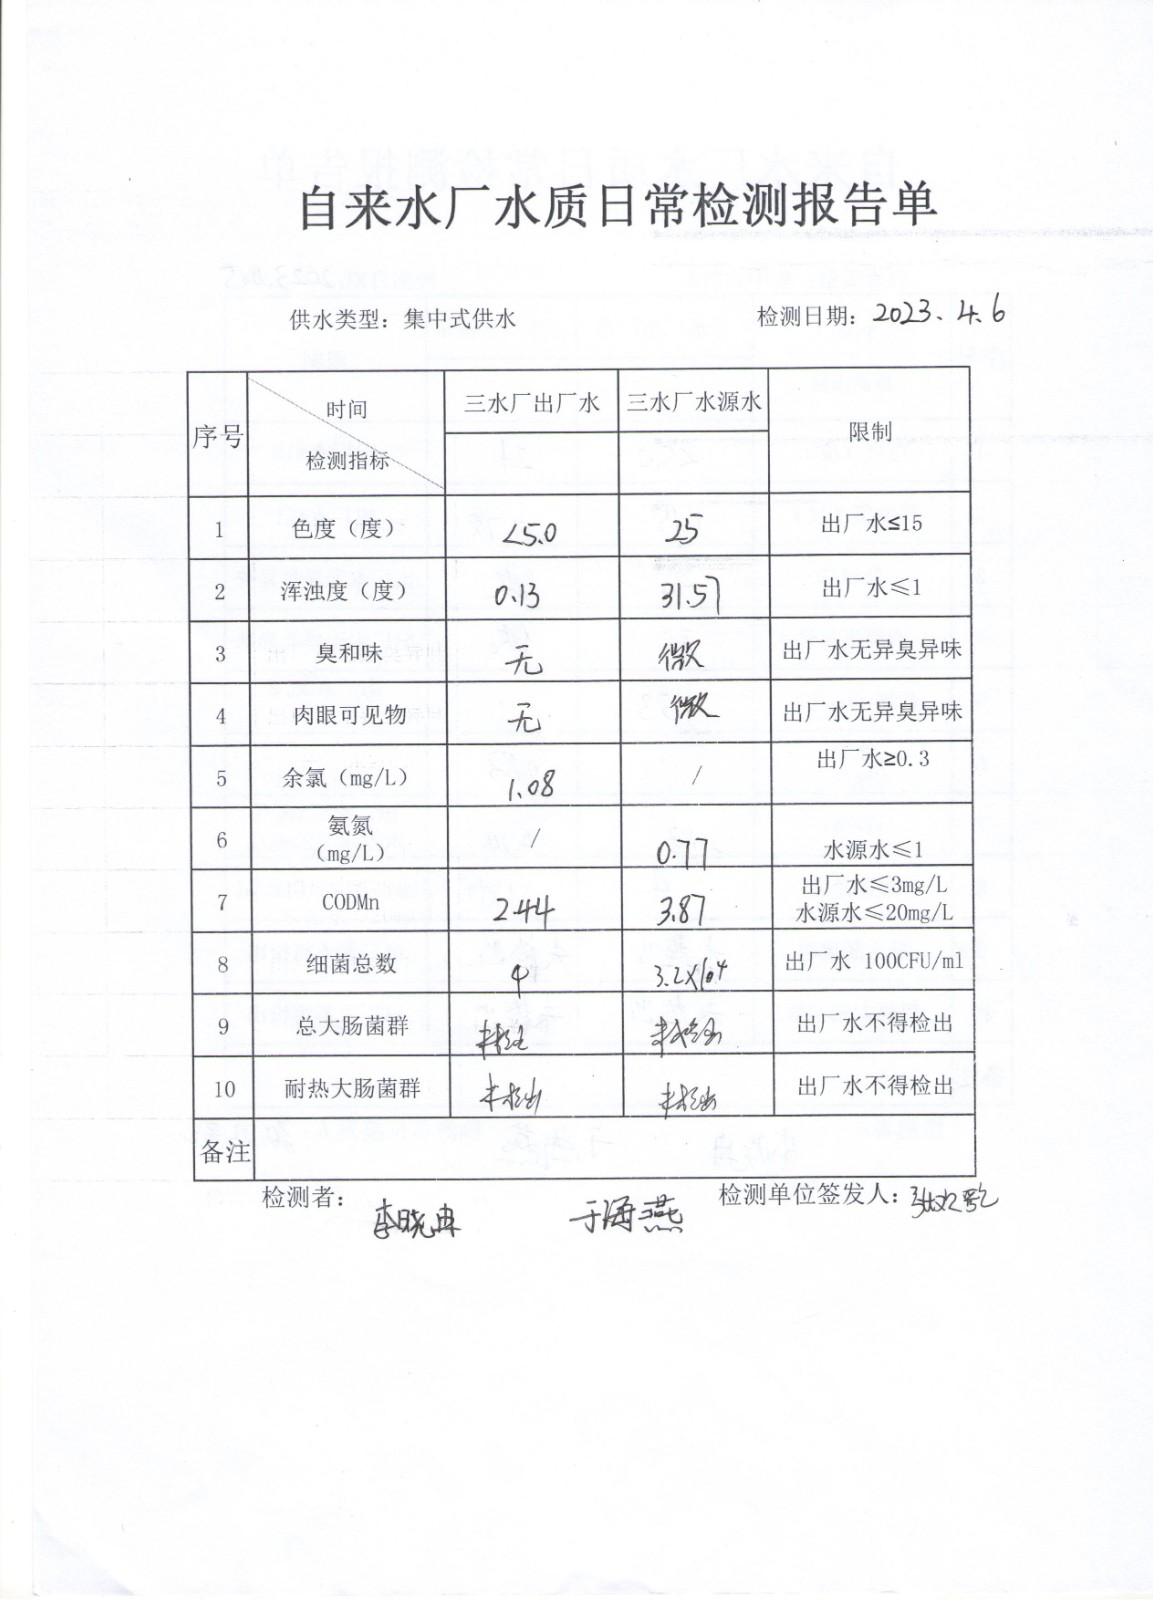 自来水厂水质日常检测报告单
供水类型：集中式供水 检测日期：2023.4.6
序号 时间 检测指标 三水厂出厂水 三水厂水源水 限制
1 色度（度） <5.0 25 出厂水≤15
2 浑浊度（度） 0.13 31.57 出厂水≤1
3 臭和味 无 微 出厂水无异臭异味
4 肉眼可见物 无 微 出厂水无异臭异味
5 余氯（mg/L） 1.08 / 出厂水≥0.3
6 氨氮（mg/L） / 0.77 水源水≤1
7 CODMn 2.44 3.87 出厂水≤3mg/L 水源水≤20mg/L
8 细菌总数 4 3.2×10⁴ 出厂水 100CFU/ml
9 总大肠菌群 未检出 未检出 出厂水不得检出
10 耐热大肠菌群 未检出 未检出 出厂水不得检出
备注
检测者： 李晓冉 于海燕 检测单位签发人：